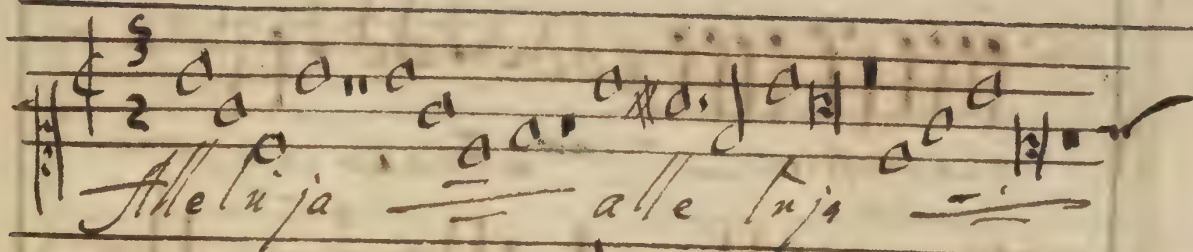 3
2
Alleluja alleluja